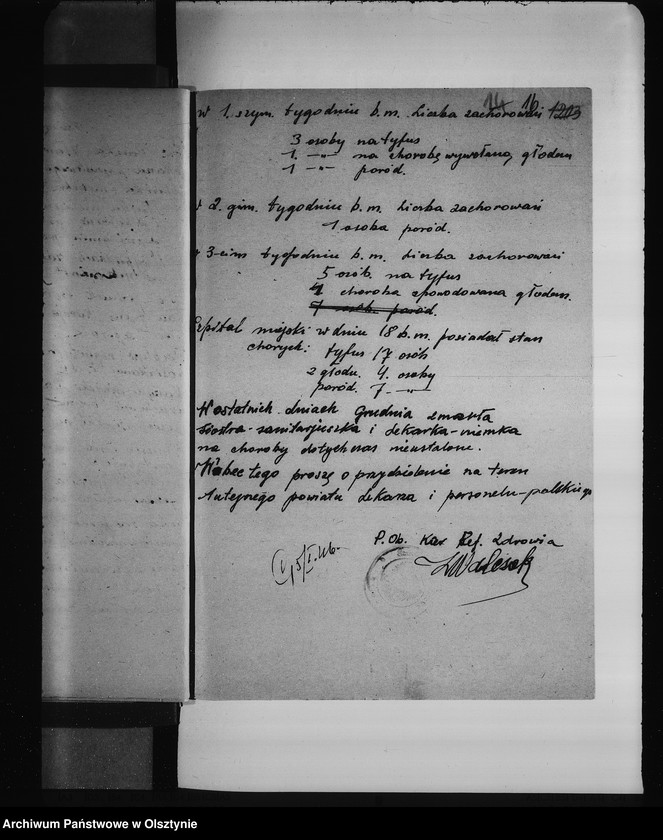 14 16 1213
w 1. szym. tygodniu b.m. liczba zachorowań
3 osoby na tyfus
1. -"- na chorobę wywołaną głodem
1 -"- poród.
w 2. gim. tygodniu b.m. liczba zachorowań
1 osoba poród.
w 3-cim tygodniu b.m. liczba zachorowań
5 osób na tyfus
4 choroba spowodowana głodem.
7 osób. poród.
Szpital miejski w dniu 18 b.m. posiadał stan
chorych: tyfus 17 osób
z głodu. 4. osoby
poród. 7. -"-
W ostatnich dniach Grudnia zmarła
siostra-sanitarjuszka i lekarka-niemka
na choroby dotychczas nieustalone.
Wobec tego proszę o przydzielenie na teren
tutejszego powiatu lekarza i personelu-polskiego
P.Ob. Kier Ref. Zdrowia
5/I.46.
Archiwum Państwowe w Olsztynie